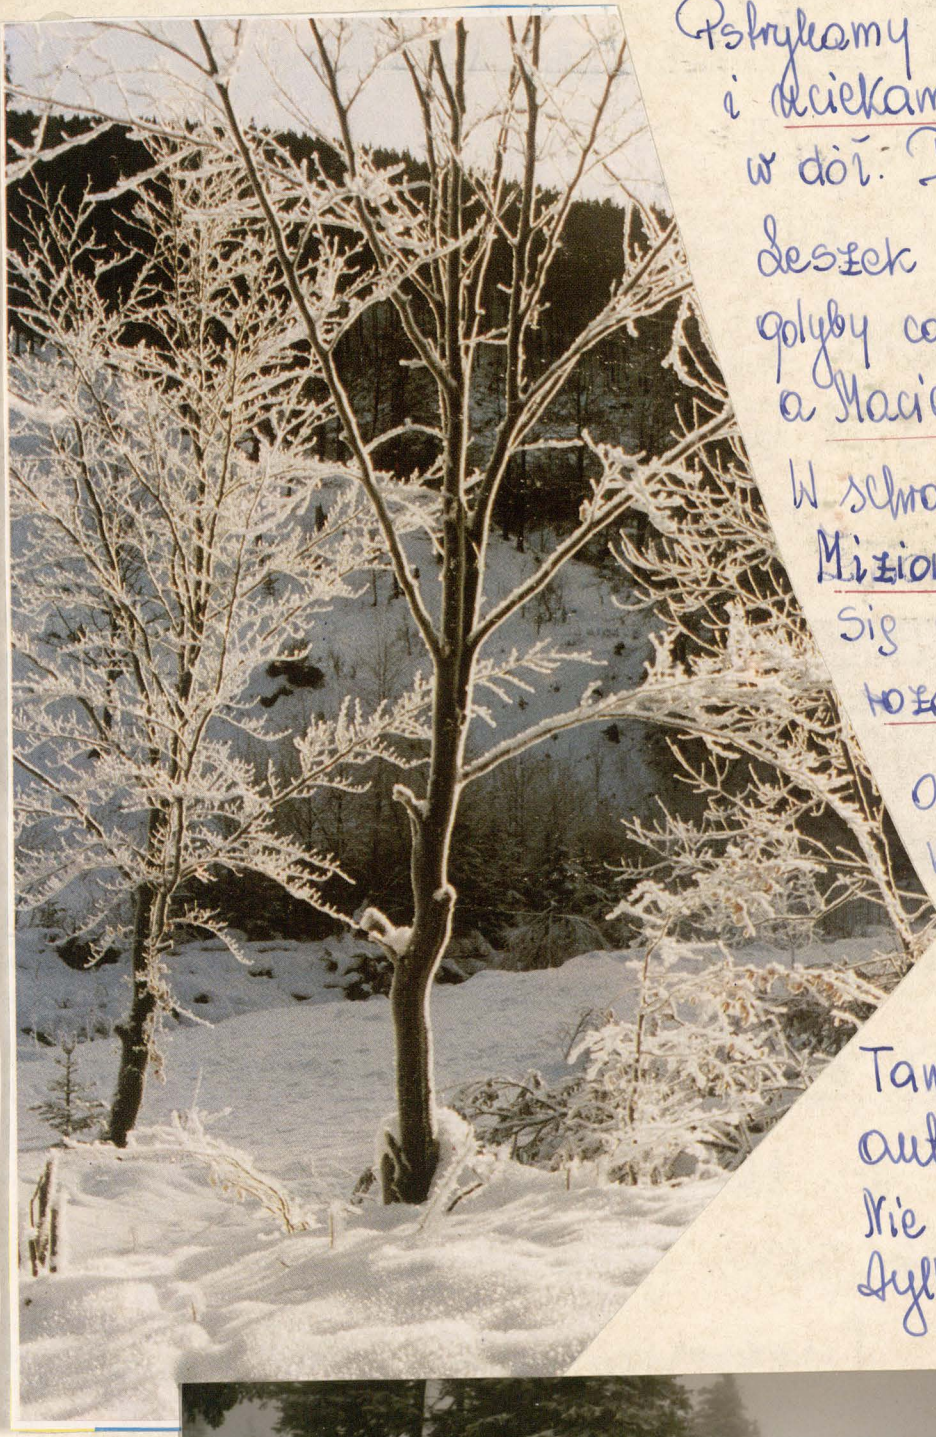 Pstrykamy
i uciekam
w dół.
Leszek
gdyby co
a Maci
W schro
Mizio
się
roz
Tam
aut
Nie
tyl